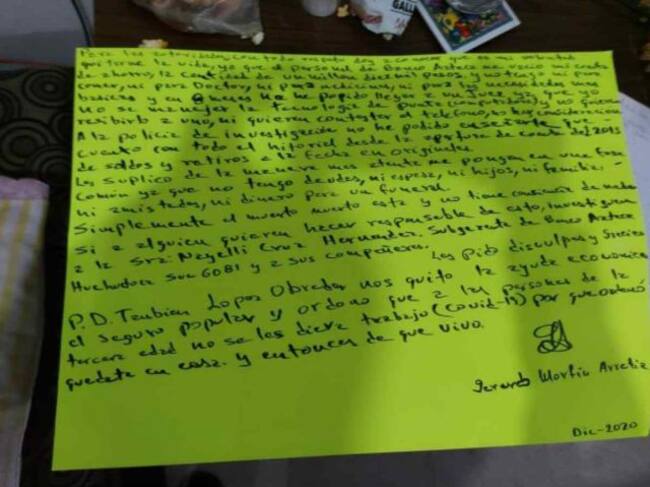 GALL
Para las autoridades, con todo respeto doy a conocer que es mi voluntad
quitarme la vida, ya que el personal de Banco Azteca vacio mi cuenta
de ahorro, la cantidad de un millon diez mil pesos, y no tengo ni para
comer, ni para Doctor, ni para medicinas, ni para las necesidades mas
basicas y en 8 meses no he podido llegar a un que yo
no se manejar la tecnologia de punta (computadora) y no quieren
resibirlo a uno, ni quieren contestar el telefono, no hay consideracion
A la policia de investigación no he podido ya que
cuento con todo el historial desde la apertura de cuenta del 2015
de saldos y retiros a la fecha en originales.
Les suplico de la manera mas atenta me pongan en una fosa
común ya que no tengo deudos, ni esposa, ni hijos, ni familia,
ni amistades, ni dinero para un funeral.
Simplemente el muerto muerto esta y no tiene continuar de
si a alguien quieren hacer responsable de esto, investiguen
a la Srz Nayelli Cruz Hernandez. Subgerente de Banco Azteca
Huehuetoca Suc 6081 y a sus compañeros.
Les pido disculpas y Gracias
P.D. Tambien Lopez Obrador nos quito la ayuda economica
el seguro popular y ordeno que a las personas de la
tercera edad no se les diera trabajo (covid-19) por que ordenó
quedate en casa. y entonces de que vivo.
Gerardo
Dic-2020